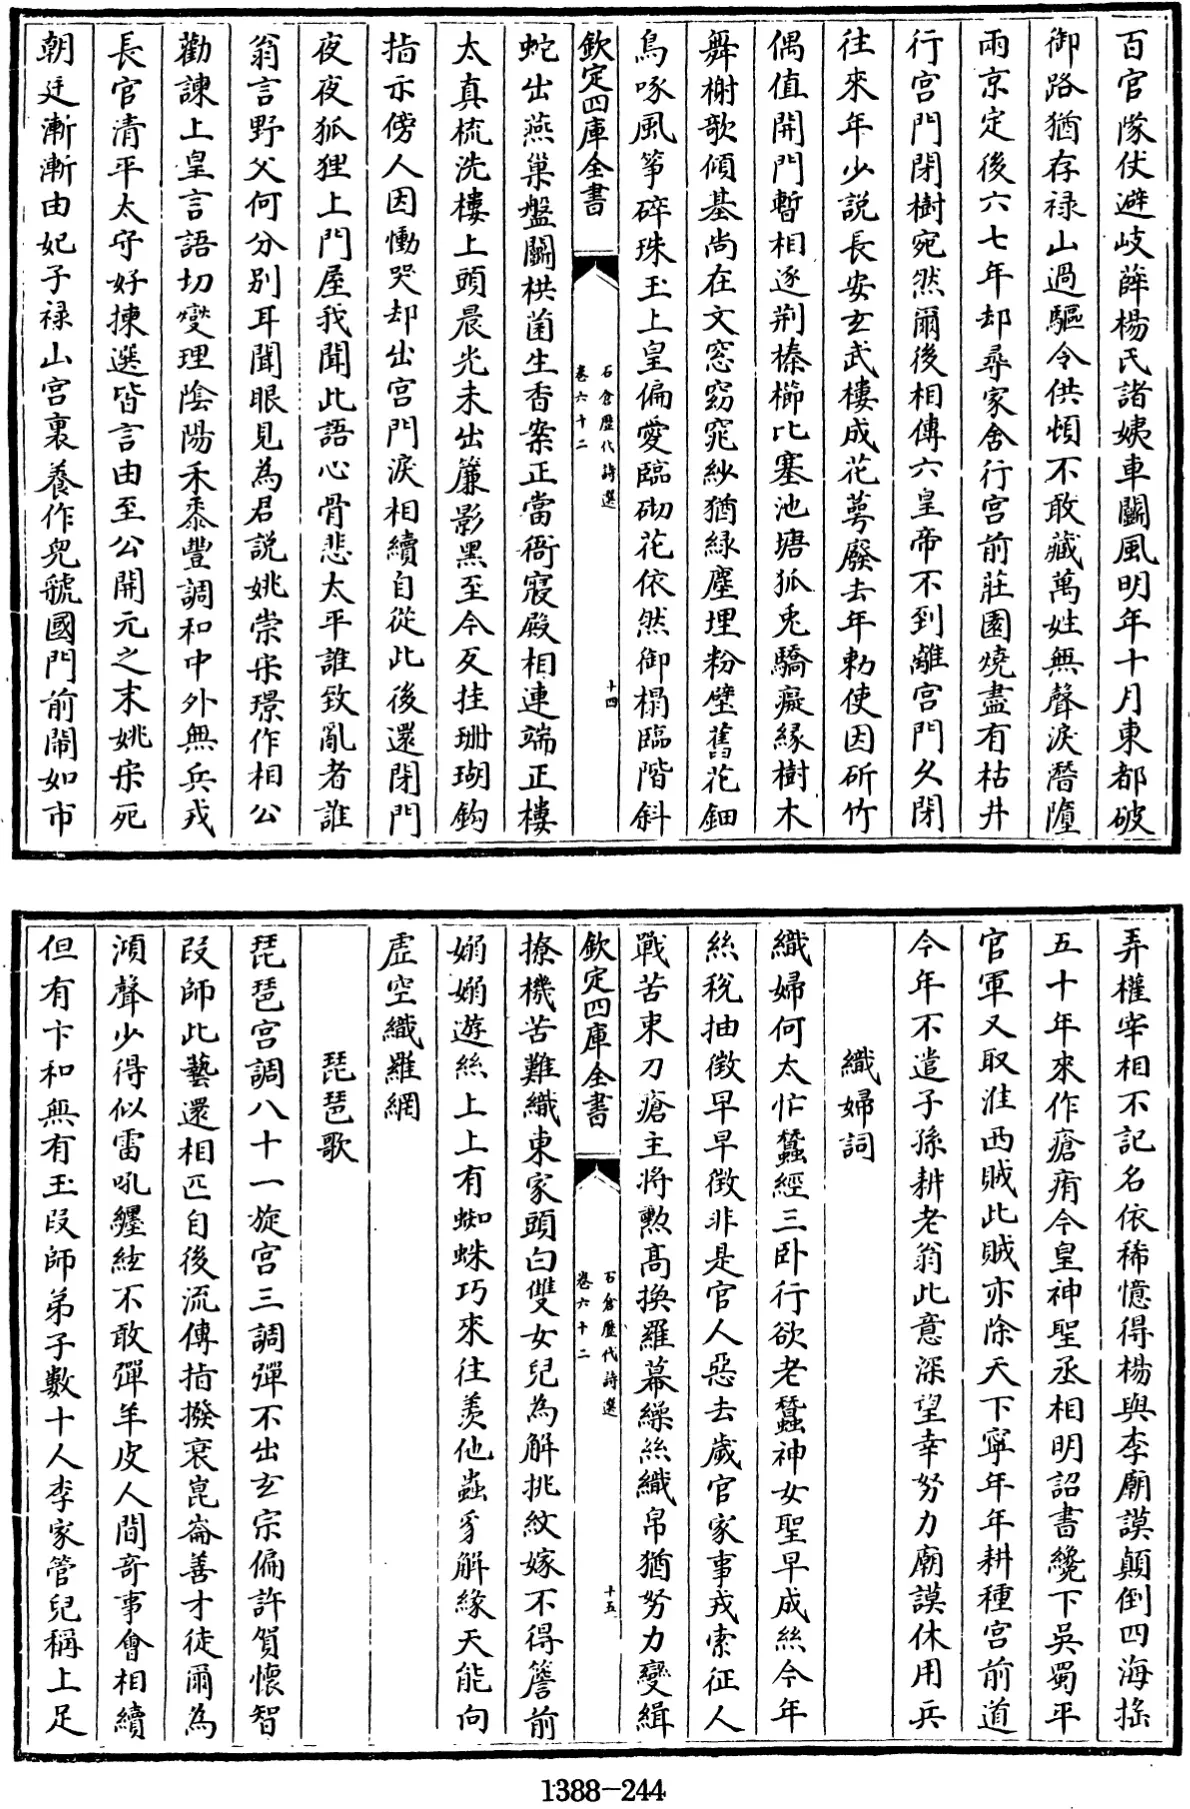 百官隊仗避岐薛楊氏諸姨車鬬風明年十月東都破
御路猶存禄山過驅令供頓不敢藏萬姓無聲淚潛墮
兩京定後六七年却尋家舍行宫前莊園燒盡有枯井
行宫門閉樹宛然爾後相傳六皇帝不到離宫門久閉
往來年少說長安玄武樓成花萼廢去年勅使因斫竹
偶值開門暫相逐荆榛櫛比塞池塘狐兎驕癡緣樹木
舞榭歌傾基尚在文窓窈窕紗猶綠塵埋粉壁舊花鈿
鳥啄風筝碎珠玉上皇偏愛臨砌花依然御榻臨階斜
欽定四庫全書
石倉歷代詩選
卷六十二
十四
蛇出燕巢盤鬬栱菌生香案正當衙寢殿相連端正樓
太真梳洗樓上頭晨光未出簾影黑至今反挂珊瑚鈎
指示傍人因慟哭却出宫門淚相續自從此後還閉門
夜夜狐狸上門屋我聞此語心骨悲太平誰致亂者誰
翁言野父何分别耳聞眼見為君說姚崇宋璟作相公
勸諫上皇言語切燮理陰陽禾黍豐調和中外無兵戎
長官清平太守好揀選皆言由至公開元之末姚宋死
朝廷漸漸由妃子禄山宫裏養作兒虢國門前鬧如市
弄權宰相不記名依稀憶得楊與李廟謨顛倒四海摇
五十年來作瘡痏今皇神聖丞相明詔書纔下吳蜀平
官軍又取淮西賊此賊亦除天下寧年年耕種宫前道
今年不遣子孫耕老翁此意深望幸努力廟謨休用兵
織婦詞
織婦何太忙蠶經三卧行欲老蠶神女聖早成絲今年
絲稅抽徵早早徵非是官人惡去歲官家事戎索征人
戰苦束刀瘡主將勲髙換羅幕繰絲織帛猶努力變緝
欽定四庫全書
石倉歷代詩選
卷六十二
十五
撩機苦難織東家頭白雙女兒為解挑紋嫁不得簷前
嫋嫋遊絲上上有蜘蛛巧來往羡他蟲豸解緣天能向
虚空織羅網
琵琶歌
琵琶宫調八十一旋宫三調彈不出玄宗偏許賀懷智
段師此藝還相匹自後流傳指撥衰崑崙善才徒爾為
澒聲少得似雷吼纒絃不敢彈羊皮人間奇事會相續
但有卞和無有玉段師弟子數十人李家管兒稱上足
1388-244